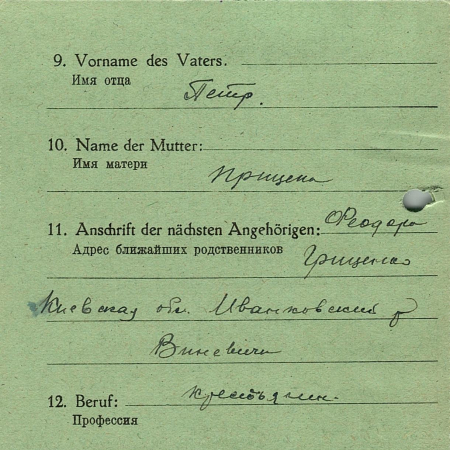 9. Vorname des Vaters.
Имя отца
Петр.
10. Name der Mutter:
Имя матери
Прищепа
11. Anschrift der nächsten Angehörigen: Феодора
Адрес ближайших родственников Грищенко
Киевская обл. Иванковский р
Виневичи
12. Beruf: крестьянин.
Профессия